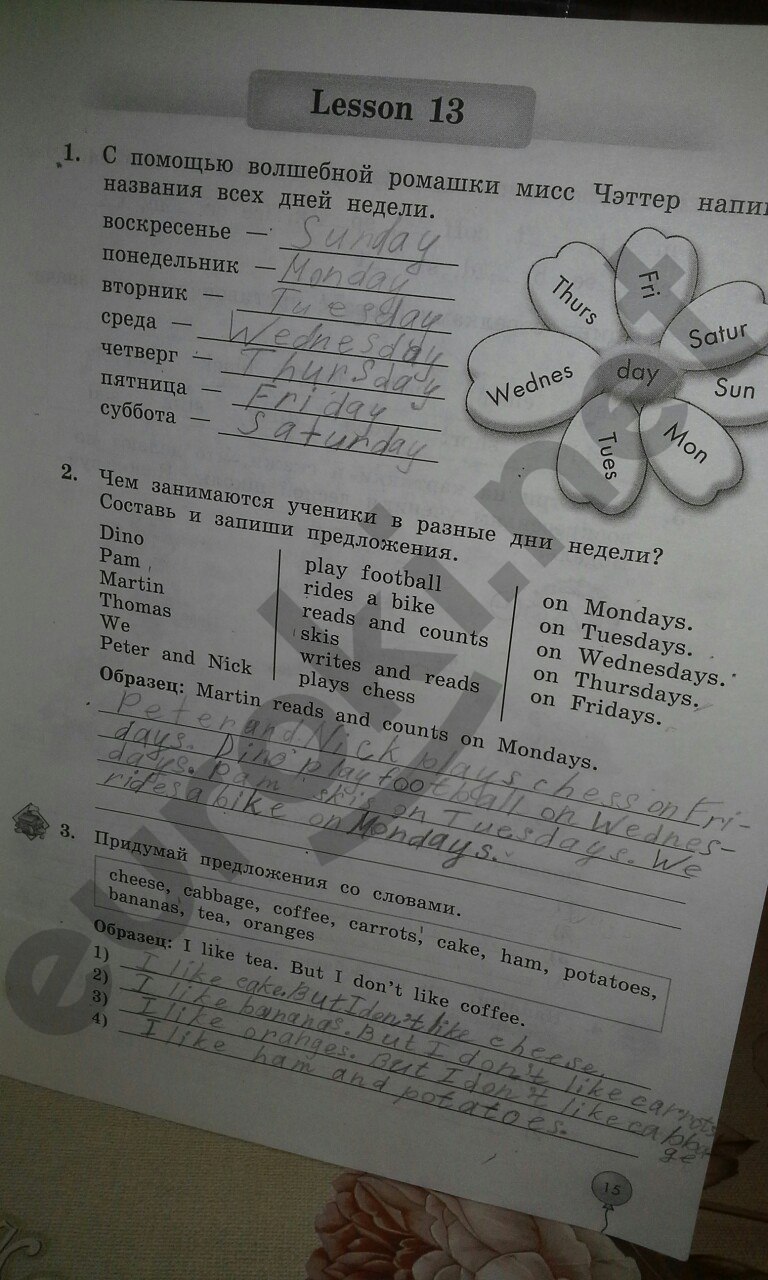 Lesson 13
1. С помощью волшебной ромашки мисс Чэттер
названия всех дней недели.
воскресенье — Sunday
понедельник — Monday
вторник — Tuesday
среда — Wednesday
четверг — Thursday
пятница — Friday
суббота — Saturday
Thurs
Fri
Satur
Wednes
day
Sun
Tues
Mon
2. Чем занимаются ученики в разные дни недели?
Составь и запиши предложения.
Dino
Pam
Martin
Thomas
We
Peter and Nick
play football
rides a bike
reads and counts
skis
writes and reads
plays chess
on Mondays.
on Tuesdays.
on Wednesdays.
on Thursdays.
on Fridays.
Образец: Martin reads and counts on Mondays.
Peter and Nick plays chess on Fri-
days. Dino play football on Wednes-
days. Pam skis on Tuesdays. We
rides a bike on Mondays.
3. Придумай предложения со словами.
cheese, cabbage, coffee, carrots, cake, ham, potatoes,
bananas, tea, oranges
Образец: I like tea. But I don't like coffee.
1) I like cake. But I don't like cheese.
2) I like bananas. But I don't like carrots
3) I like oranges. But I don't like cabba
ge
4) I like ham and potatoes.
15
euroki.net